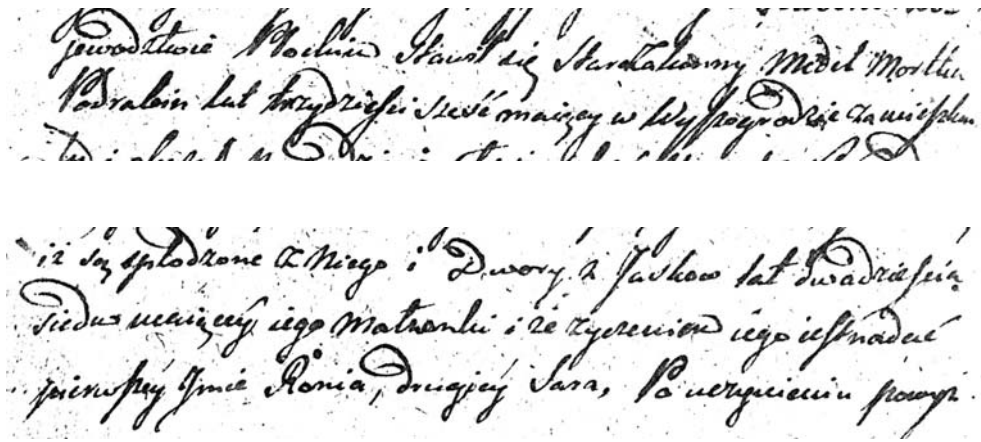 jewodztwie Płockim Stawił się Starozakonny Midel Mortka
Podrabin lat trzydziesci sześć maiący w Wyszogrodzie zamieszka
iż są spłodzone z Niego i Dwory z Jaskow lat dwadzieścia
siedm maiącey iego Małżonki i że życzeniem iego iest nadać
pierwszey Jmie Ronia, drugiey Sara, Po uczynieniu powyż